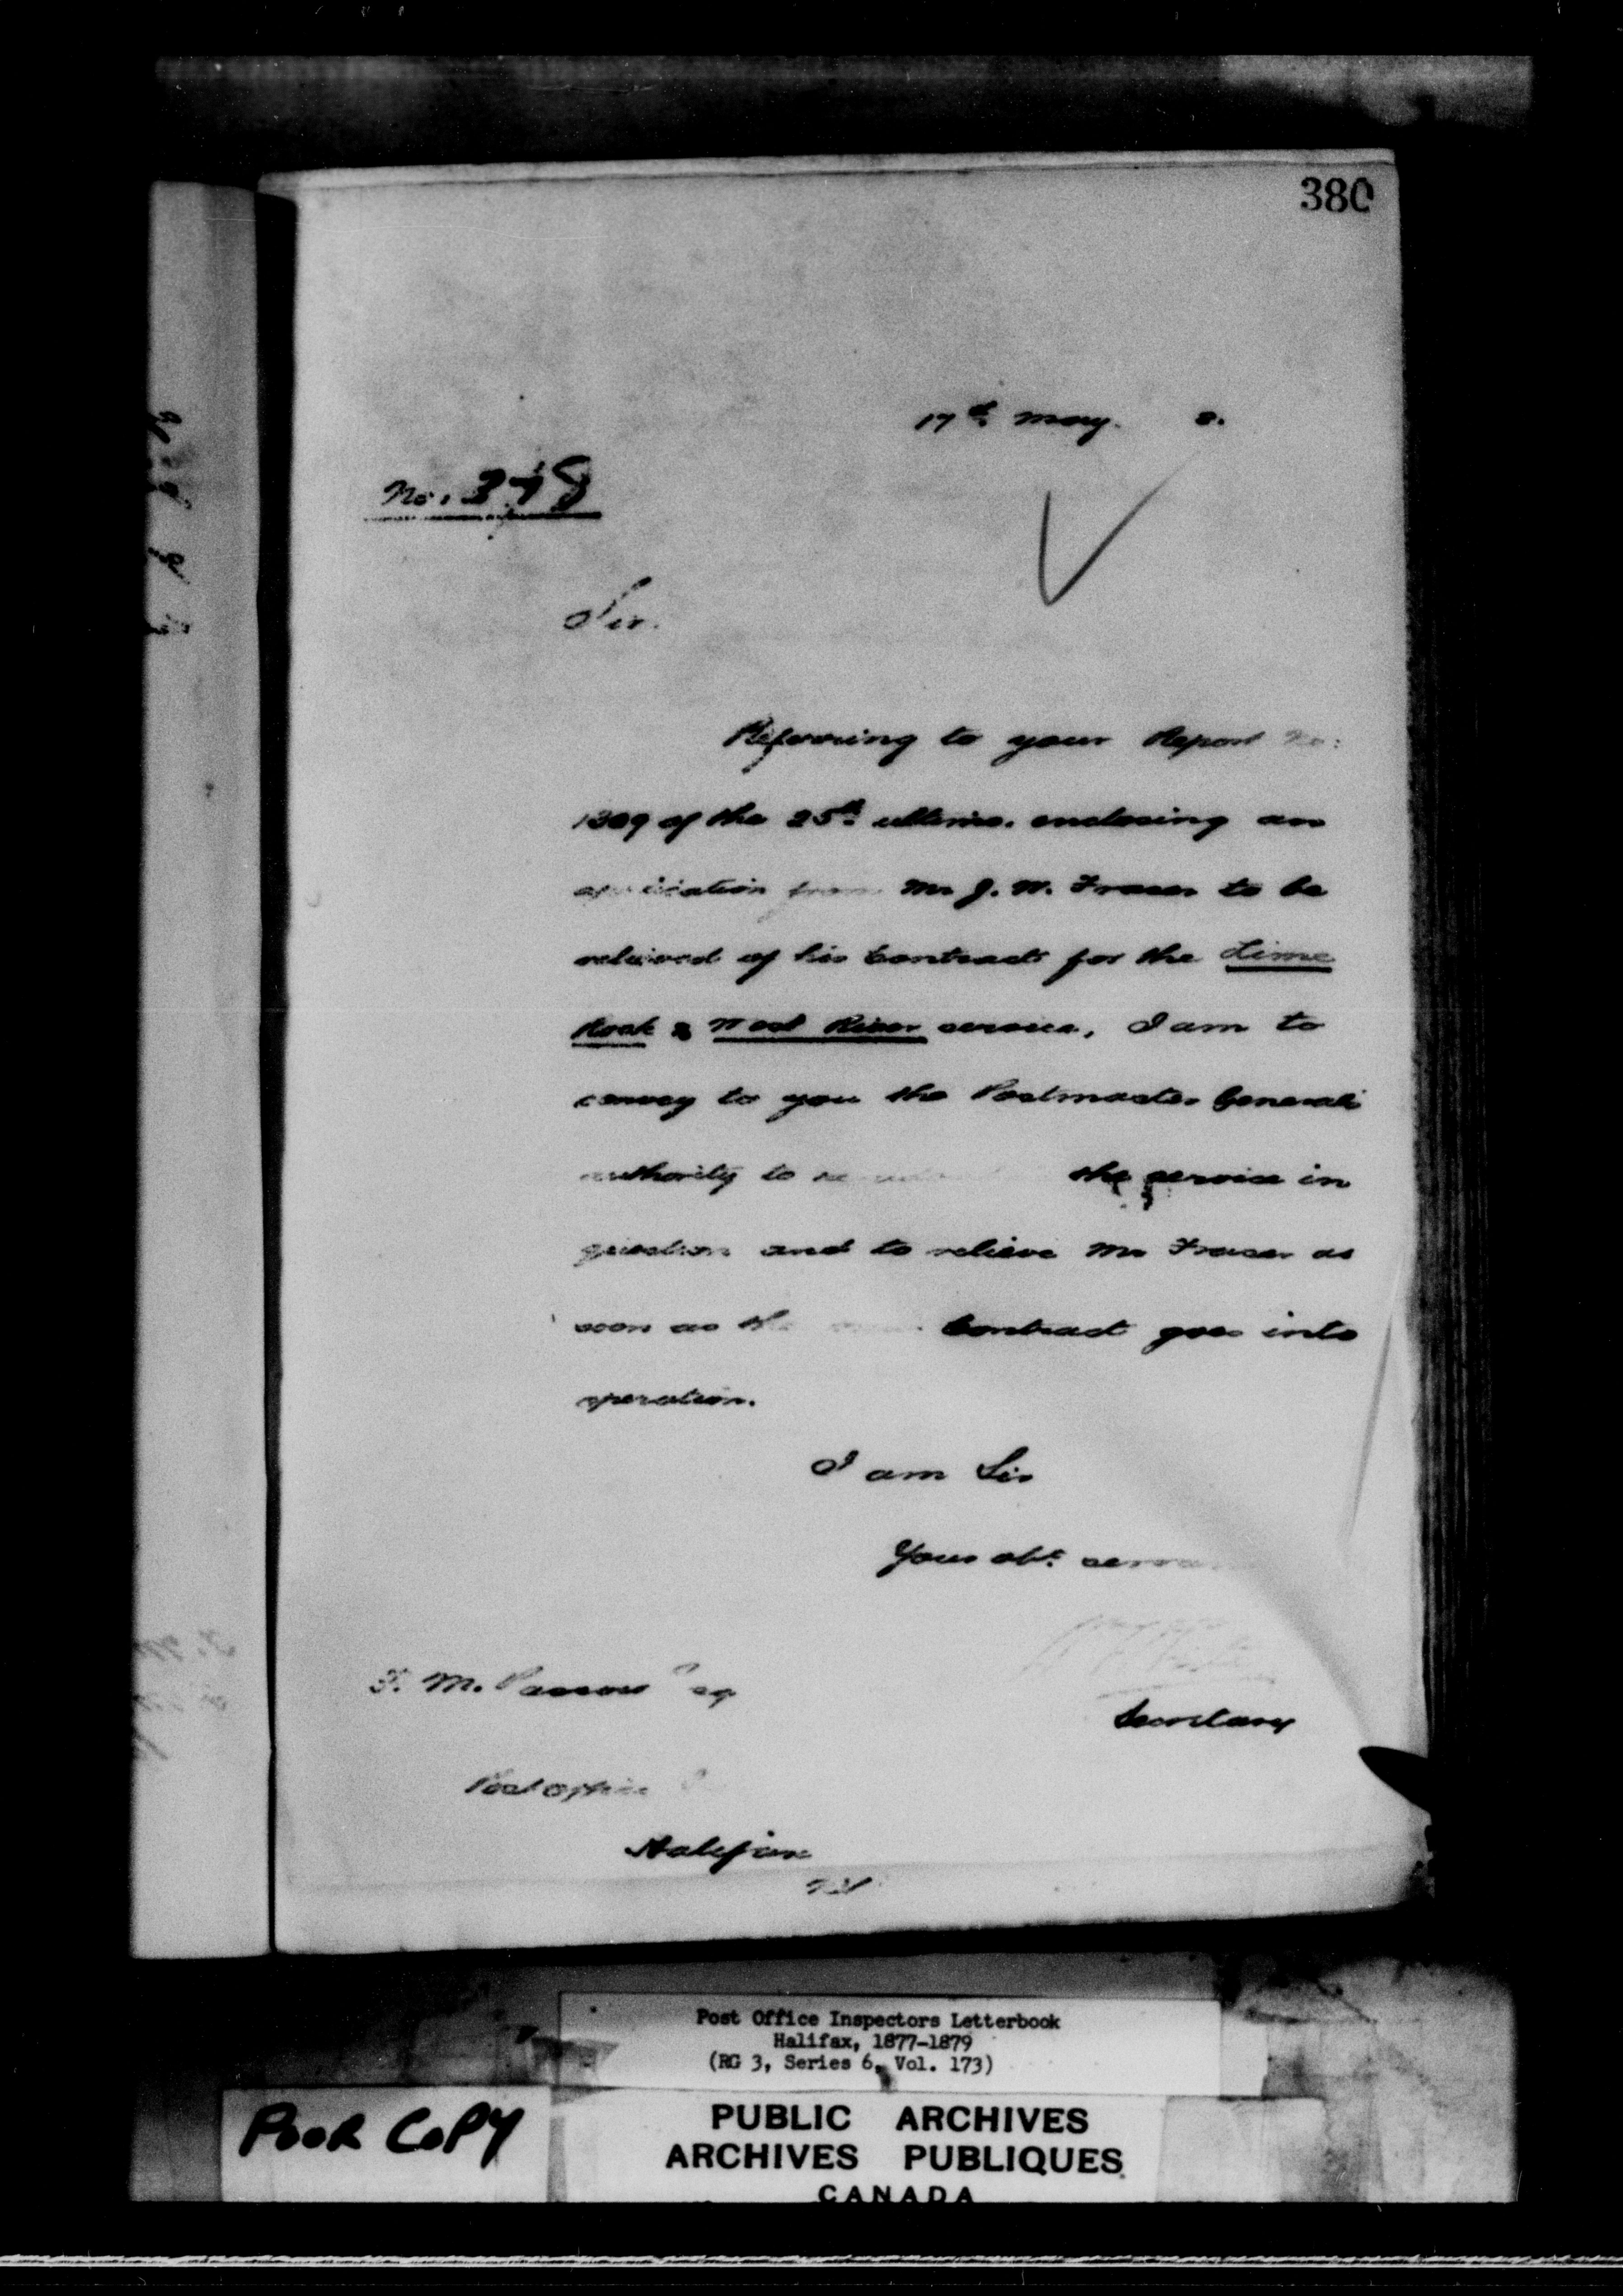 380
17th May. 8.
No. 348
Sir.
Referring to your Report No:
1309 of the 25th ultimo. enclosing an
application from Mr J. W. Fraser to be
relieved of his Contract for the Lime
Rock & West River service, I am to
convey to you the Postmaster Generals
authority to the service in
question and to relieve Mr Fraser as
soon as the Contract goes into
operation.
I am Sir
Your obt. servant
Secretary
F. M. Passow Esq
Post Office
Halifax
NS
Post Office Inspectors Letterbook
Halifax, 1877-1879
(RG 3, Series 6, Vol. 173)
POOR COPY
PUBLIC ARCHIVES
ARCHIVES PUBLIQUES
CANADA